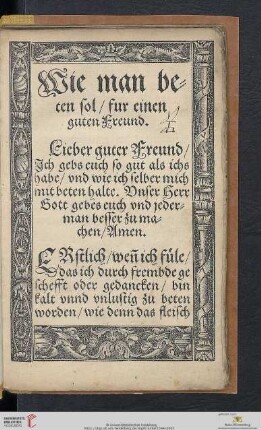 Wie man be-
ten sol / fur einen
guten Freund.
Lieber guter Freund /
Ich gebs euch so gut als ichs
habe / vnd wie ich selber mich
mit beten halte. Vnser Herr
Gott gebes euch vnd jeder-
man besser zu ma-
chen / Amen.
ERstlich / weñ ich füle /
das ich durch frembde ge
schefft oder gedancken / bin
kalt vnnd vnlustig zu beten
worden / wie denn das fleisch